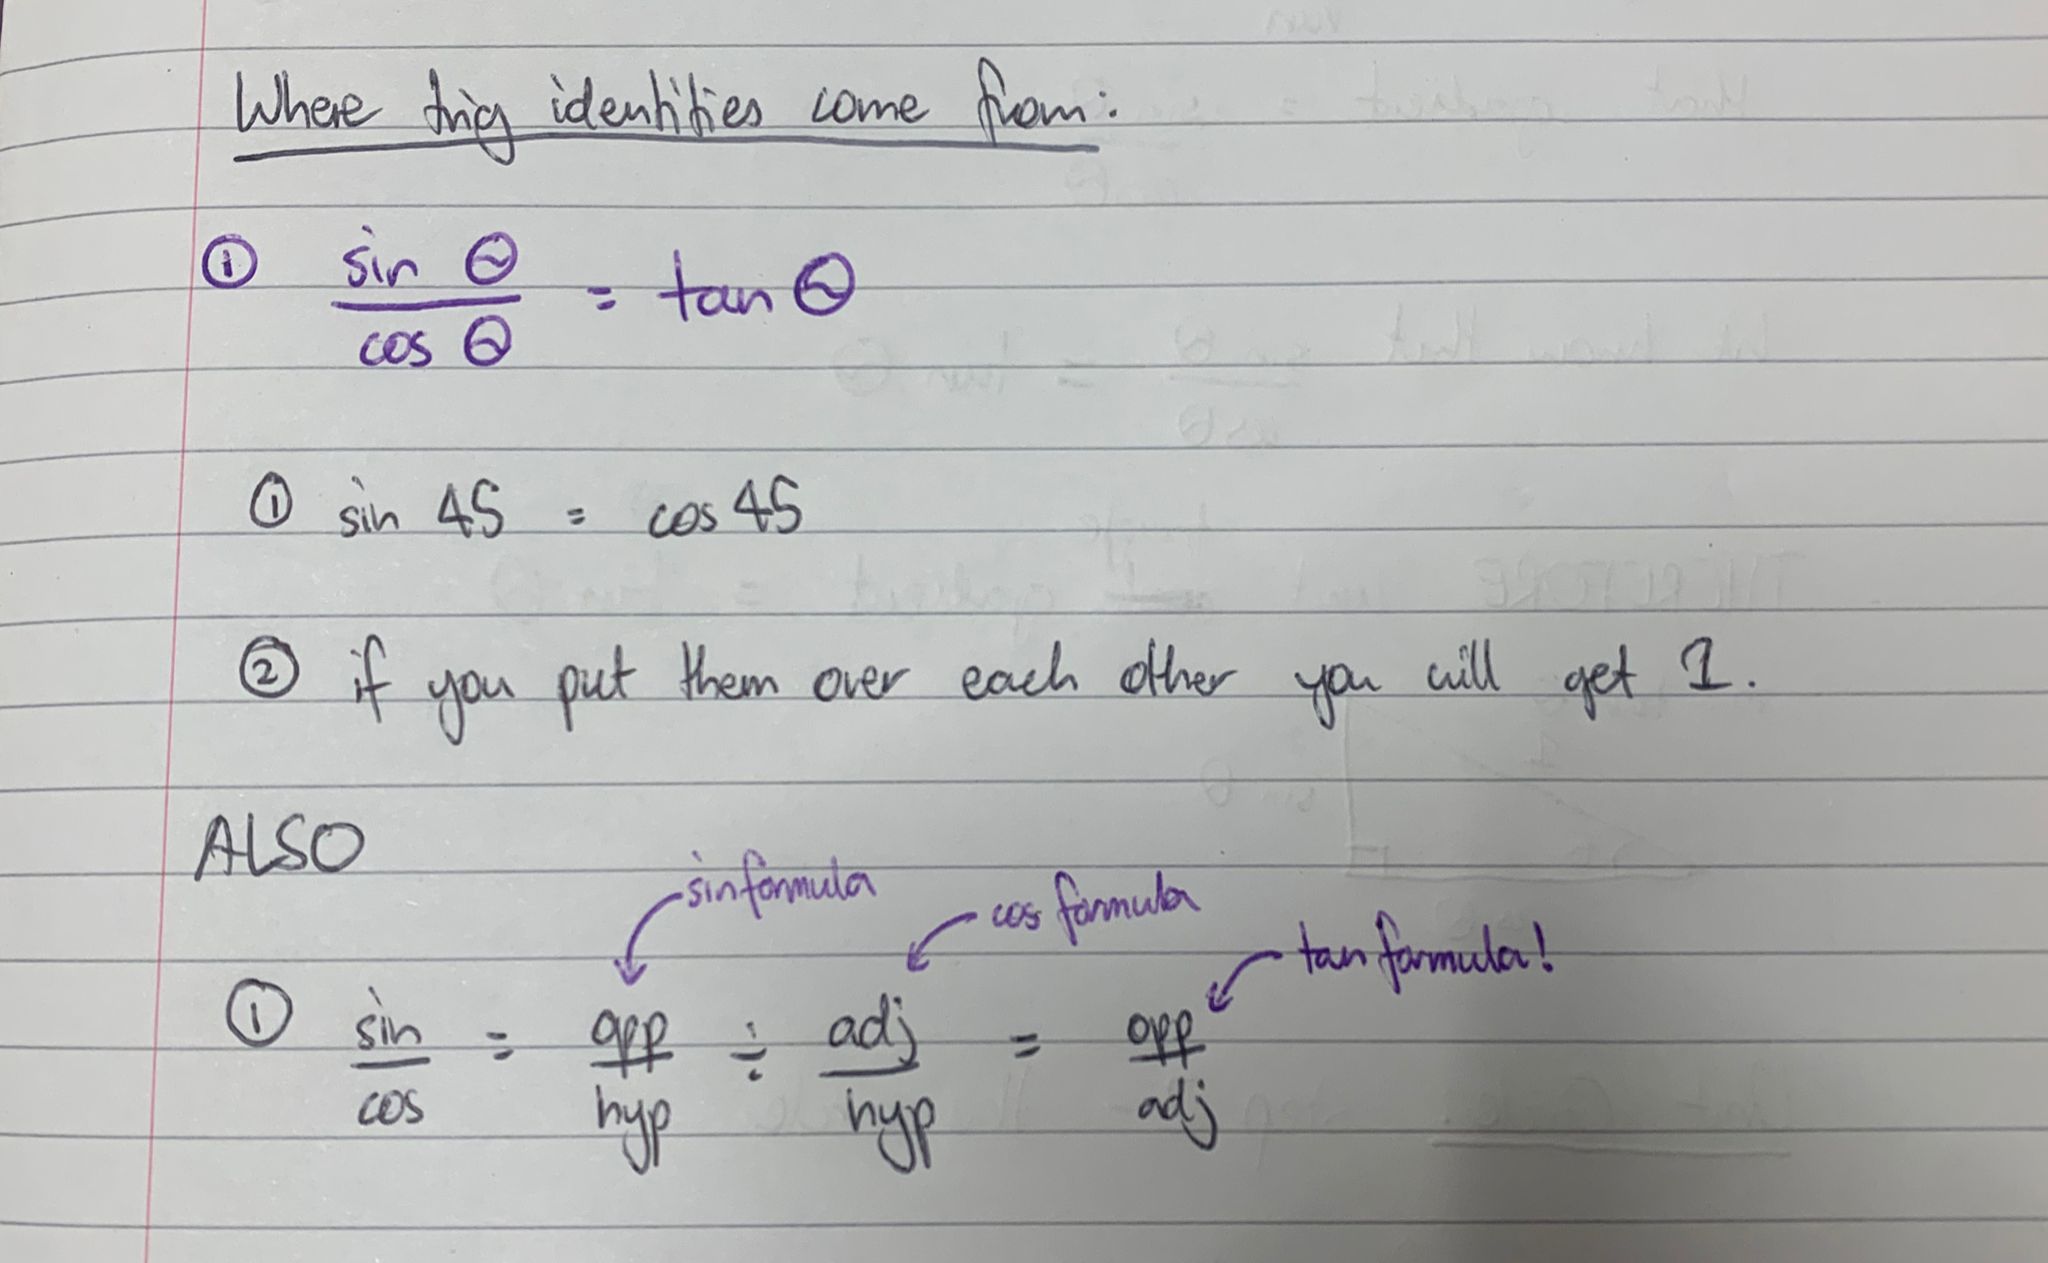 Where trig identities come from:
① sin θ / cos θ = tan θ
① sin 45 = cos 45
② if you put them over each other you will get 1.
ALSO
sin formula
cos formula
tan formula!
① sin / cos = opp / hyp ÷ adj / hyp = opp / adj